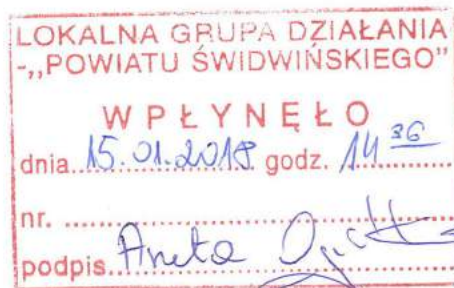 LOKALNA GRUPA DZIAŁANIA
-„POWIATU ŚWIDWIŃSKIEGO”
WPŁYNĘŁO
dnia 15.01.2018 godz. 14 36
nr.
podpis Aneta